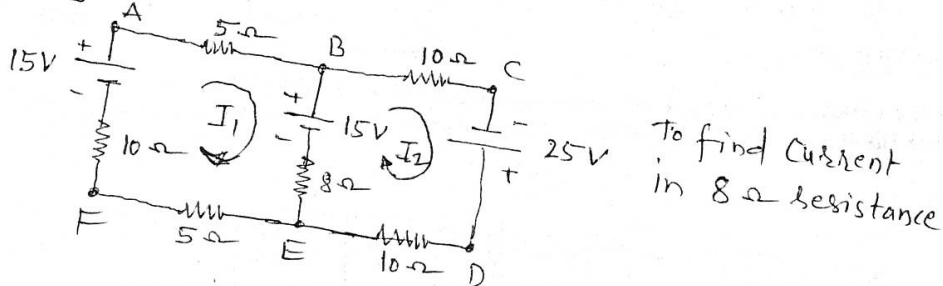 A
5Ω
B
10Ω
C
15V
+
-
I₁
+
-
15V
I₂
-
+
25V
10Ω
8Ω
F
5Ω
E
10Ω
D
To find Current
in 8Ω resistance